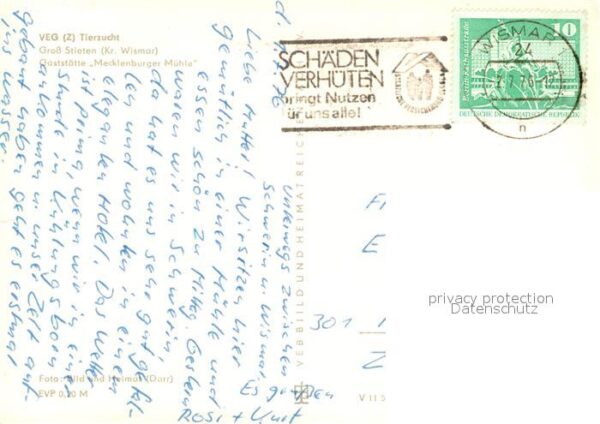 VEG (Z) Tierzucht
Groß Stieten (Kr. Wismar)
Gaststätte „Mecklenburger Mühle"
SCHÄDEN
VERHÜTEN
bringt Nutzen
für uns alle!
WISMAR
24
n
10
DEUTSCHE DEMOKRATISCHE REPUBLIK
Unterwegs zwischen
Schwerin u. Wismar
Liebe Mutter! Wir sitzen hier
gemütlich in einer Mühle und
essen schön zu Mittag. Gestern
waren wir in Schwerin,
da hat es uns sehr gut gefal-
len und wohnten in einem
eleganten Hotel. Das Wetter
ist prima, wenn wir in einer
Stunde in Kühlungsborn
ankommen u. unser Zelt auf-
gebaut haben geht es erstmal
ins Wasser.
Es grüßen
Rosi + Kurt
301
VEB BILD UND HEIMAT REICHE
Foto: Bild und Heimat (Darr)
EVP 0,20 M
V 11 5
privacy protection
Datenschutz